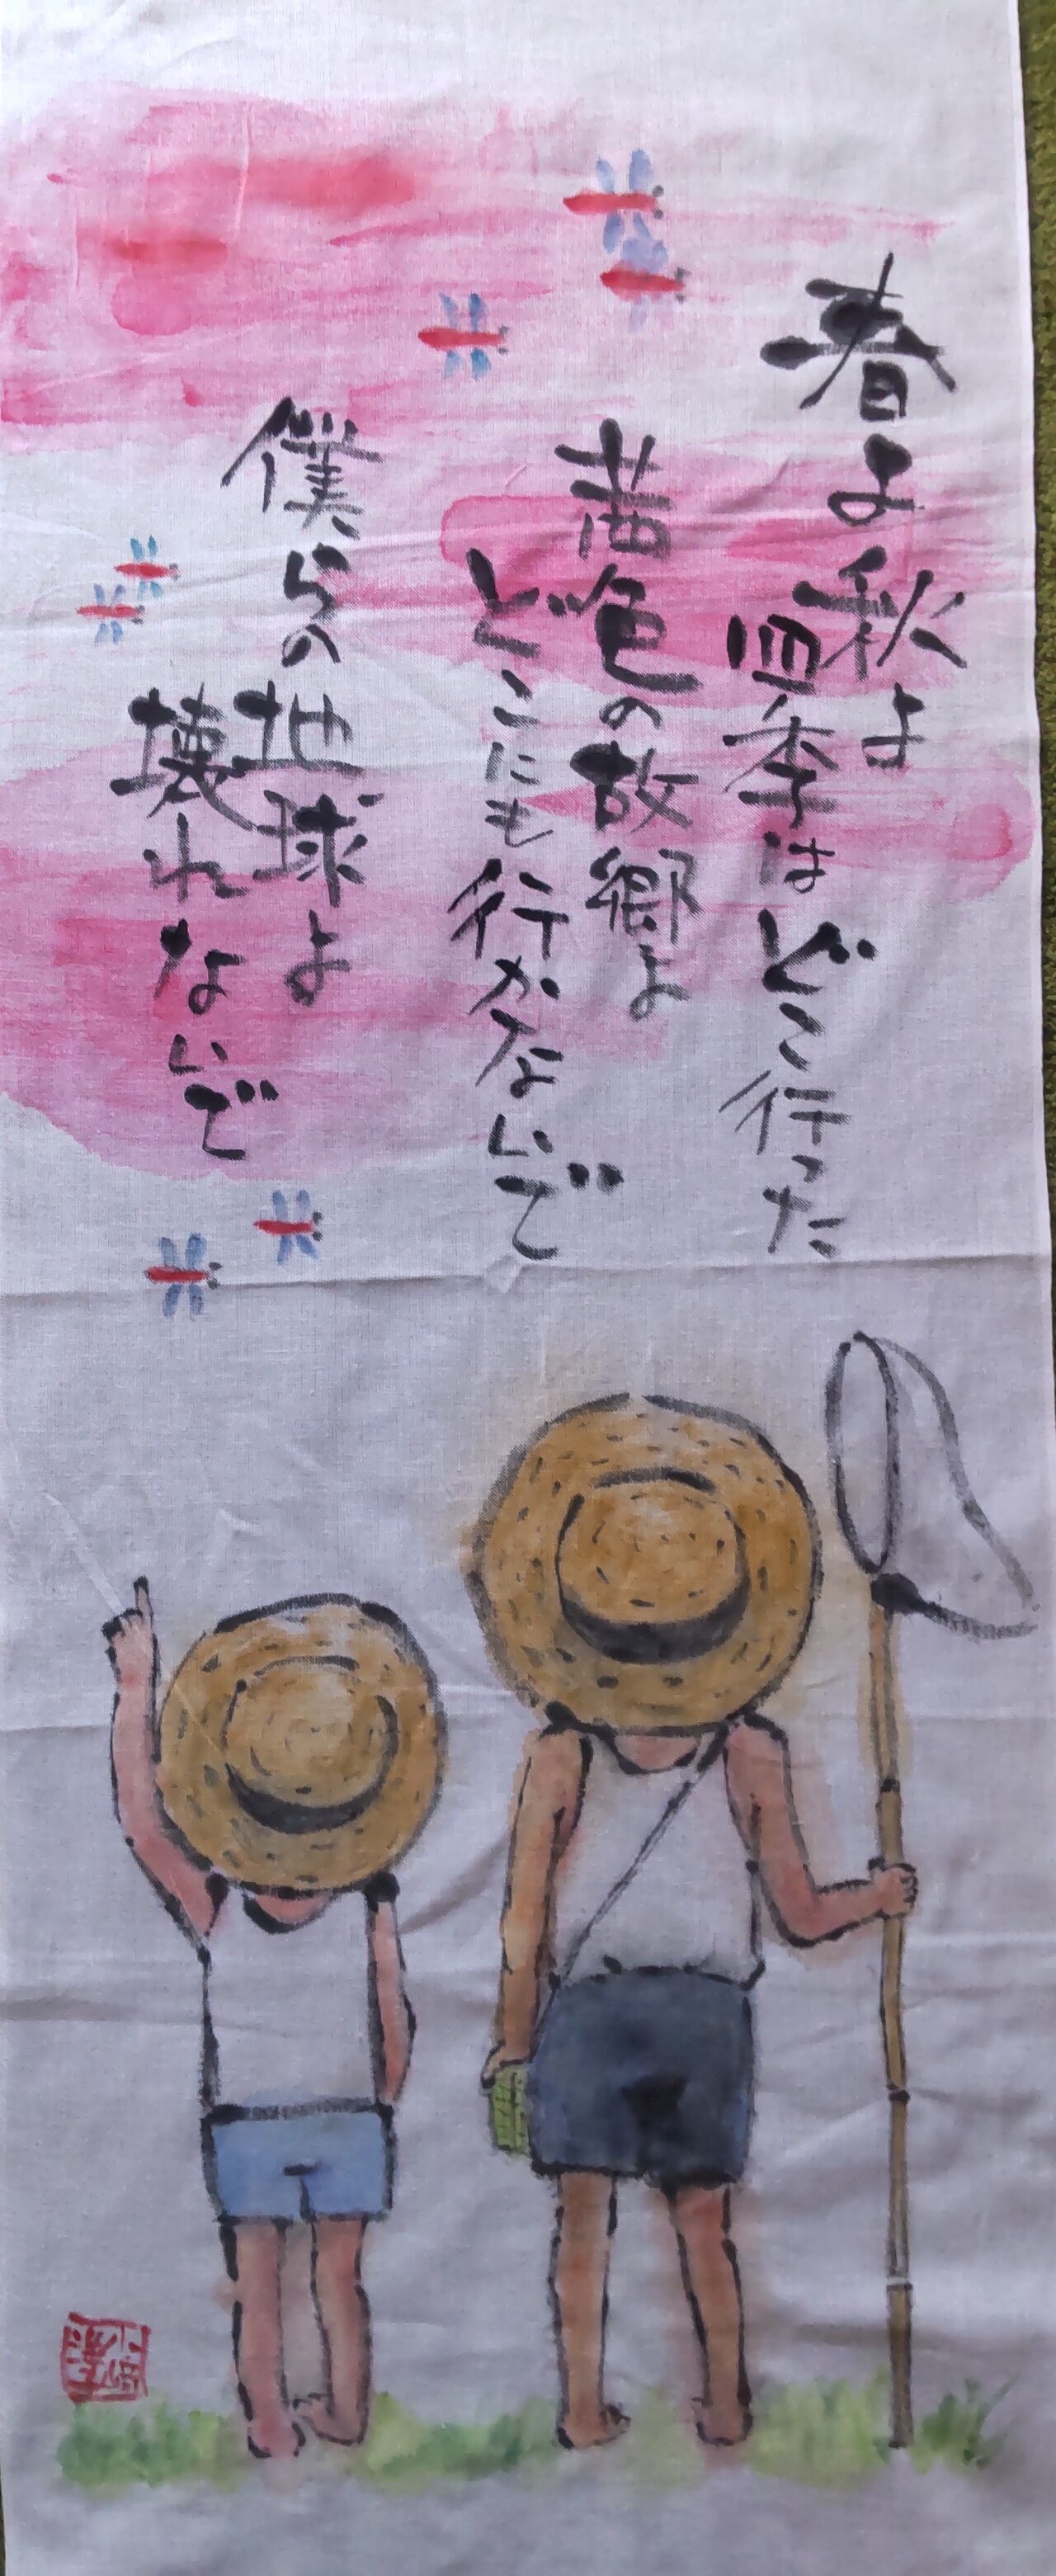 春よ秋よ
四季はどこ行った
茜色の故郷よ
どこにも行かないで
僕らの地球よ
壊れないで